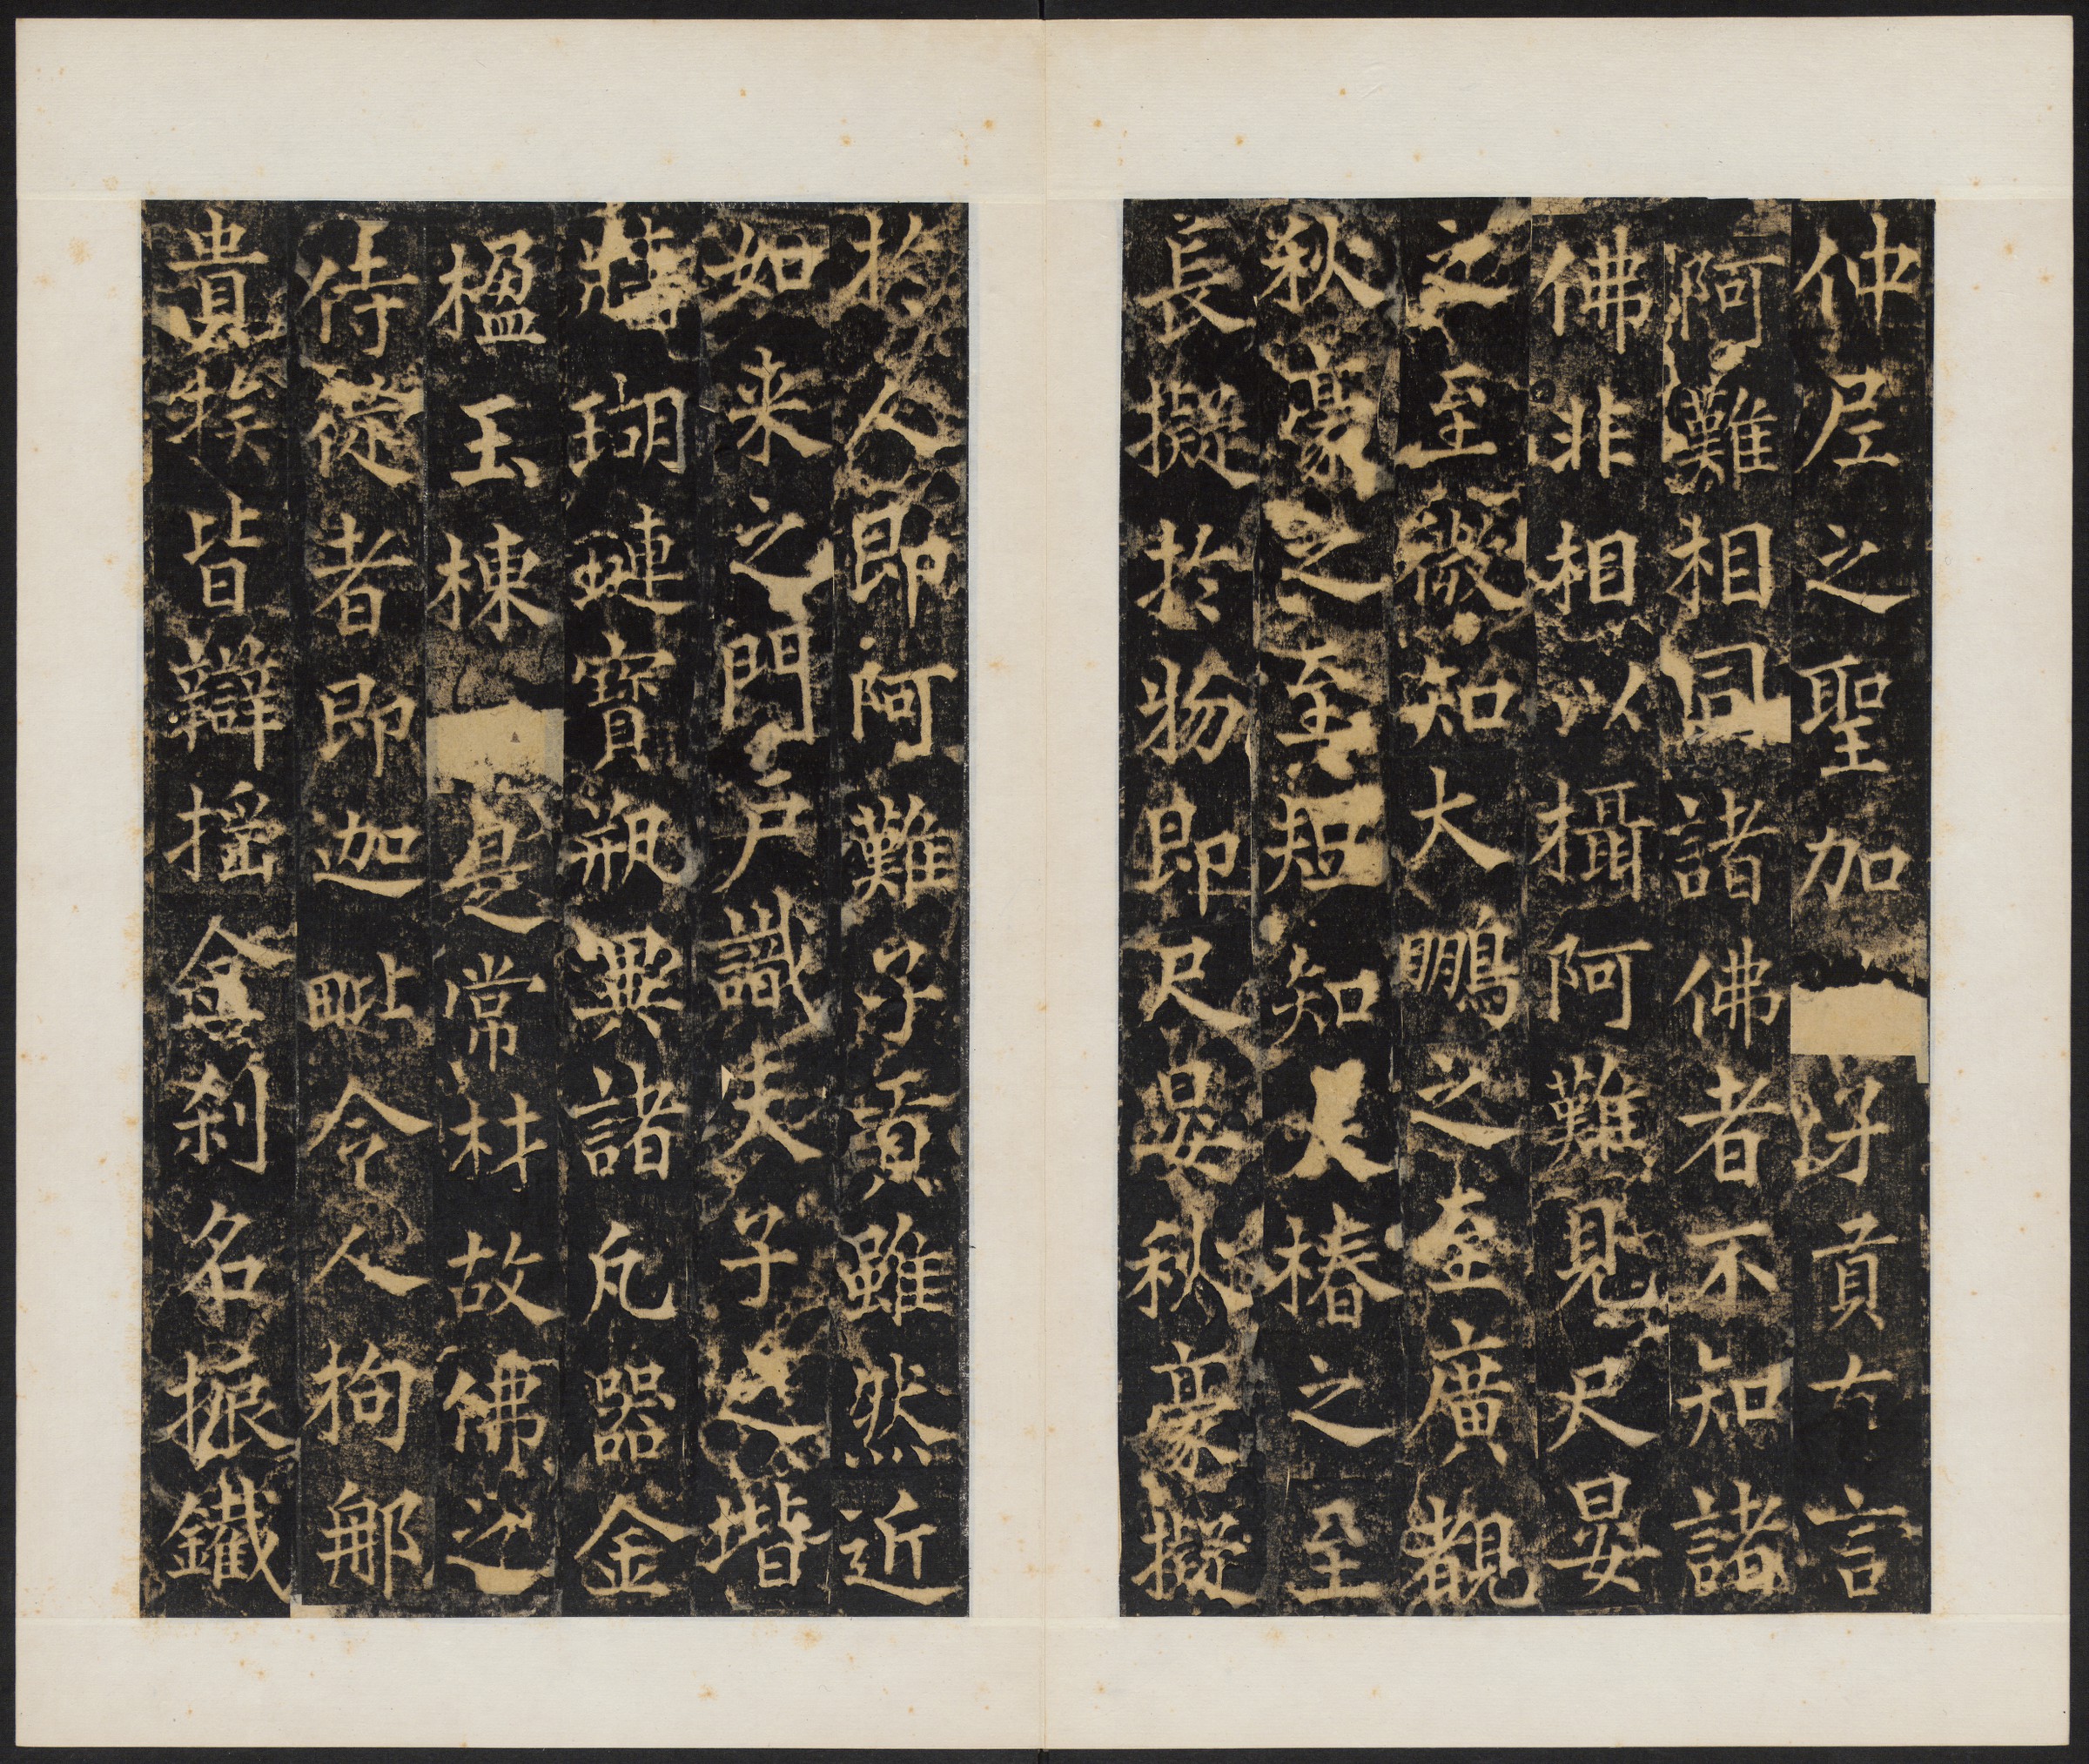 仲尼之聖加子貢右言
阿難相同諸佛者不知諸
佛非相以攝阿難見尺晏
之至微知大鵬之至廣觀
秋豪之至短知大椿之至
長擬於物即尺晏秋豪擬
於人即阿難子貢雖然近
如来之門戶識夫子之堦
牆瑚璉寶瓶異諸凡器金
楹玉棟是常材故佛之
侍從者即迦毗令人拘郍
貴族皆辯搖金刹名振鐵